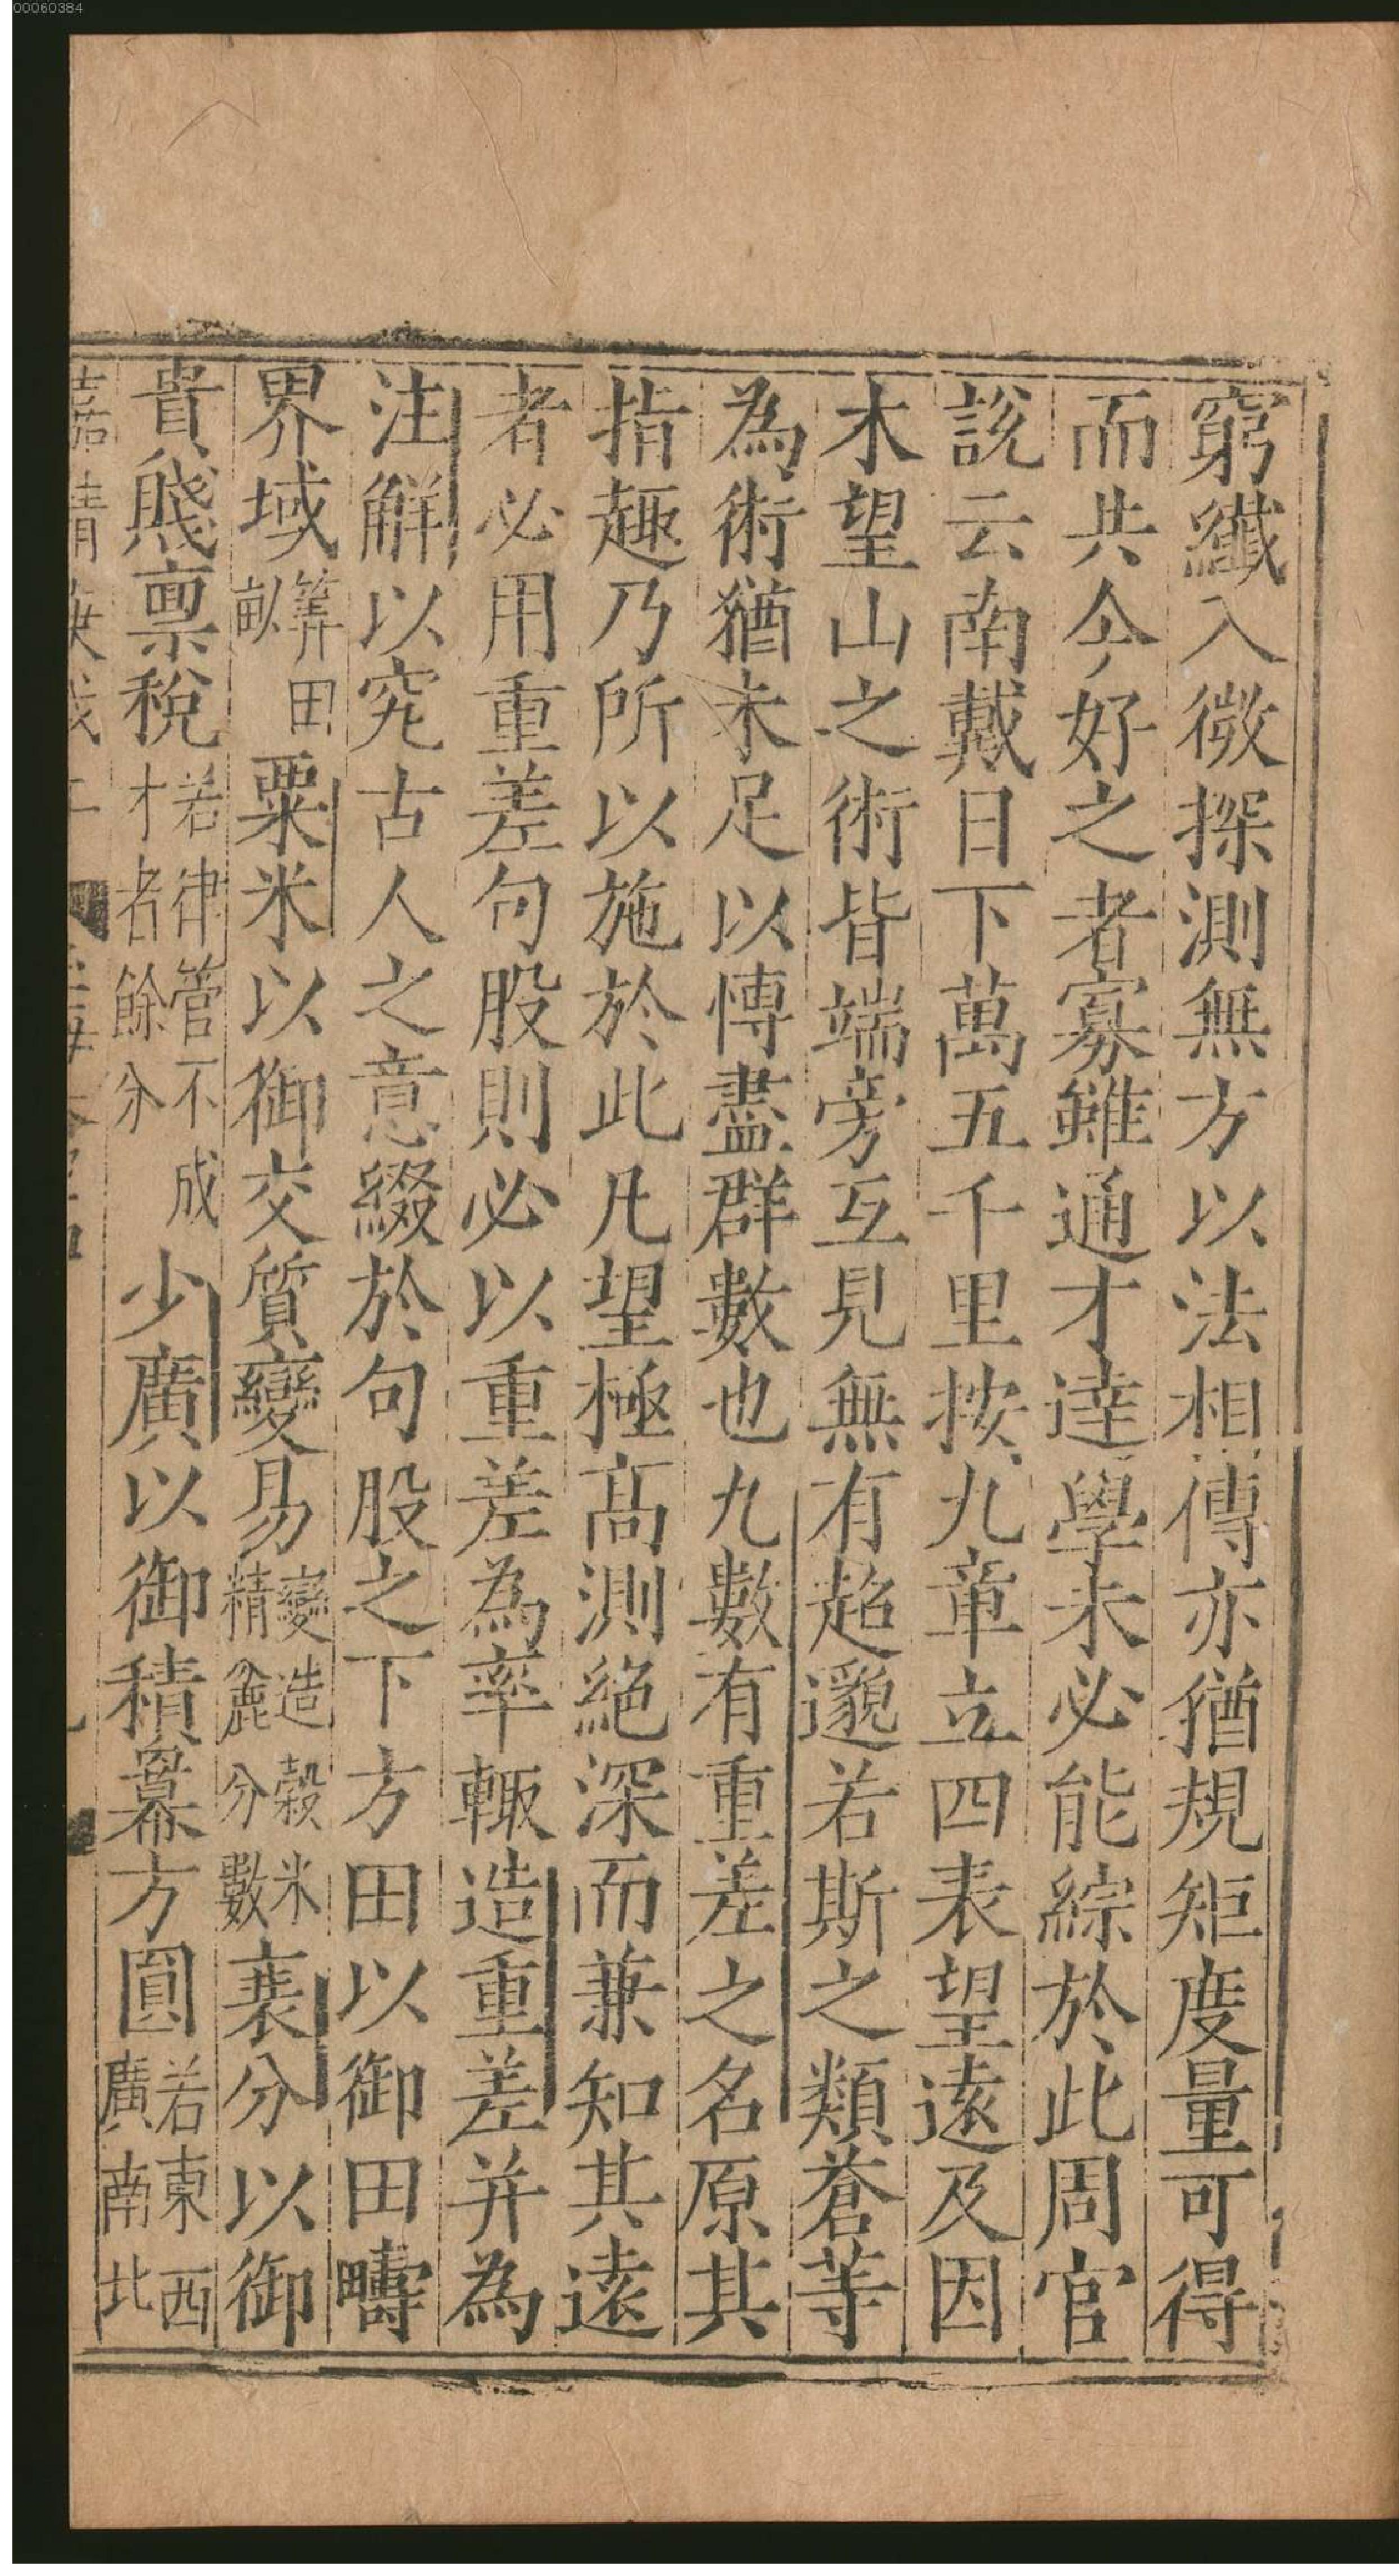 00060384
窮纖入微探測無方以法相傳亦猶規矩度量可得
而共今好之者寡雖通才達學未必能綜於此周官
說云南戴日下萬五千里按九章立四表望遠及因
木望山之術皆端旁互見無有超邈若斯之類蒼等
為術猶未足以慱盡群數也九數有重差之名原其
指趣乃所以施於此凡望極高測絕深而兼知其遠
者必用重差句股則必以重差為率輙造重差并為
注解以究古人之意綴於句股之下方田以御田疇
界域筭田畝粟米以御交質變易變造榖米精麁分數衰分以御
貴賤禀稅若律管不成才者餘分少廣以御積冪方圓若東西廣南北